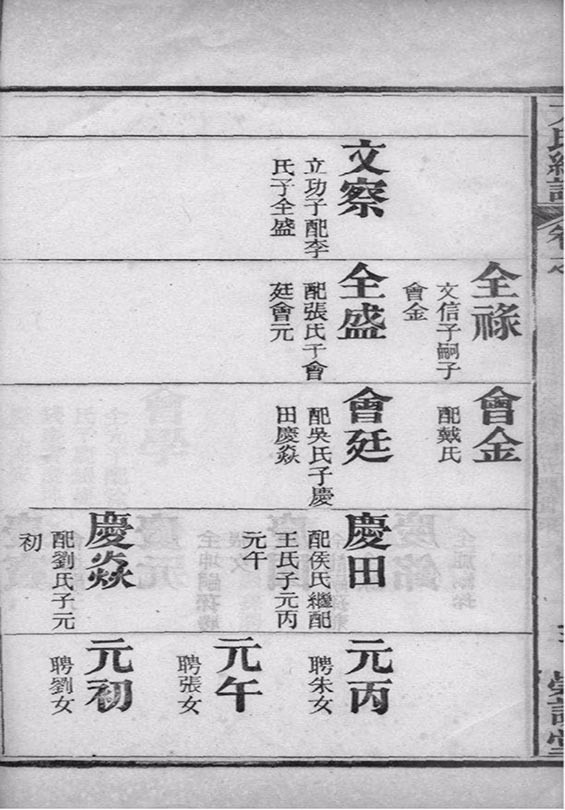 文察
立功子配李
氏子全盛
全祿
文信子嗣子
會金
全盛
配張氏子會
廷會元
會金
配戴氏
會廷
配吳氏子慶
田慶焱
慶田
配侯氏繼配
王氏子元丙
元午
慶焱
配劉氏子元
初
元丙
聘朱女
元午
聘張女
元初
聘劉女